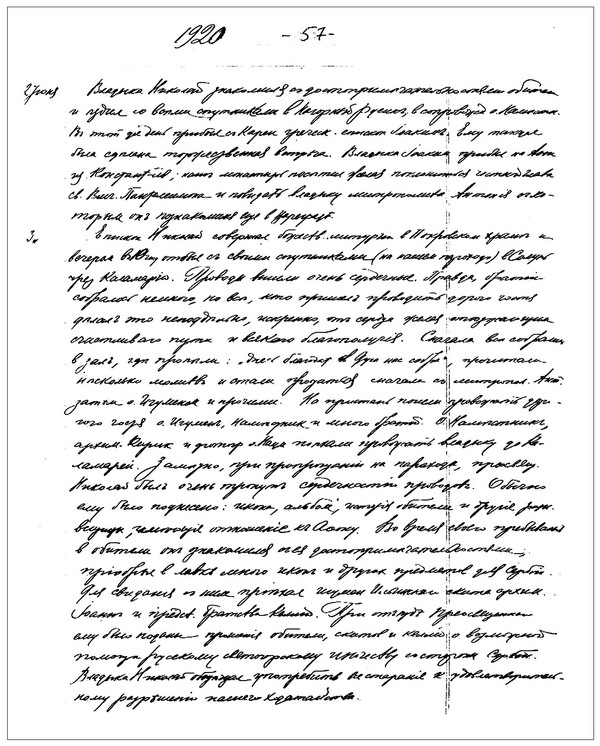 1920 -57-
2 Июня Владыка Николай знакомился съ достопримечательностями обители
и ездил со всеми спутниками в Нагорный Русик, в сопровожд. о. Наместн.
В этот же день прибыл съ Кареи греческ. епископ Иоаким. Ему также
была сделана торжественная встреча. Владыка Иоаким прибыл на Афон
из Константинополя;
св. Вмч. Пантелеимона и повидать владыку митрополита Антония, съ ко-
торым он познакомился еще в
3 „ Епископ Николай совершал божеств. литургию в Покровском храме и
вечером отбыл съ своими спутниками (на нашем пароходе) в Солунь
чрез Каламарию. Проводы вышли очень сердечные. Правда, братии
собралось немного, но все, кто пришел проводить дорогого гостя
делал это неподдельно, искренно, от сердца желая отъезжающим
счастливого пути и всякого благополучия. Сначала все собрались
в зале, где пропели: „Днесь благодать Св. Духа нас собра“, прочитали
несколько молитв и стали прощаться сначала съ митропол. Ант.
затем о. Игуменом и прочими. На пристань пошли провожать доро-
гого гостя о. Игумен, Наместник и много братии. О. Наместник,
архим. Кирик и поехали провожать владыку до Ка-
ламарии. Заметно, при препровождении на пароход, преосвящ.
Николай был очень тронут сердечностью проводов. Обителью
ему было поднесено: икона, альбом, обители и другие
вещицы, имеющие отношение къ Афону. Во время своего пребывания
в обители он знакомился съ ея достопримечательностями,
приобрел в лавке много икон и других предметов для Сербии.
Для свидания съ ним приехал игумен Ильинского скита архим.
Иоанн и предст. братства келлий. При отъезде Преосвященному
ему было подано прошение обители, скитов и келлий о возможной
помощи русскому святогорскому иночеству со стороны Сербии.
Владыка Николай обещал употребить все старание к удовлетворитель-
ному разрешению нашего ходатайства.